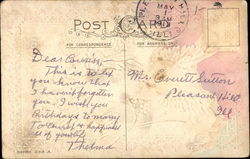 POST CARD
FOR CORRESPONDENCE
FOR ADDRESS ONLY
MAY
Dear Cousin,
This is to let
you know that
I haven't forgotten
you. I wish you
Birthdays to many
to Come, & happiness
all of your life
Thelma
Mrs. Sutton
Pleasant Hill
Ill